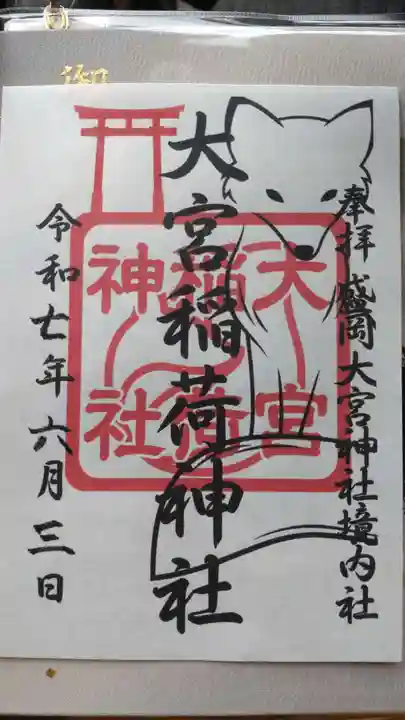 奉拝 盛岡大宮神社境内社
大宮稲荷神社
令和七年六月三日
大宮
稲荷
神社
御